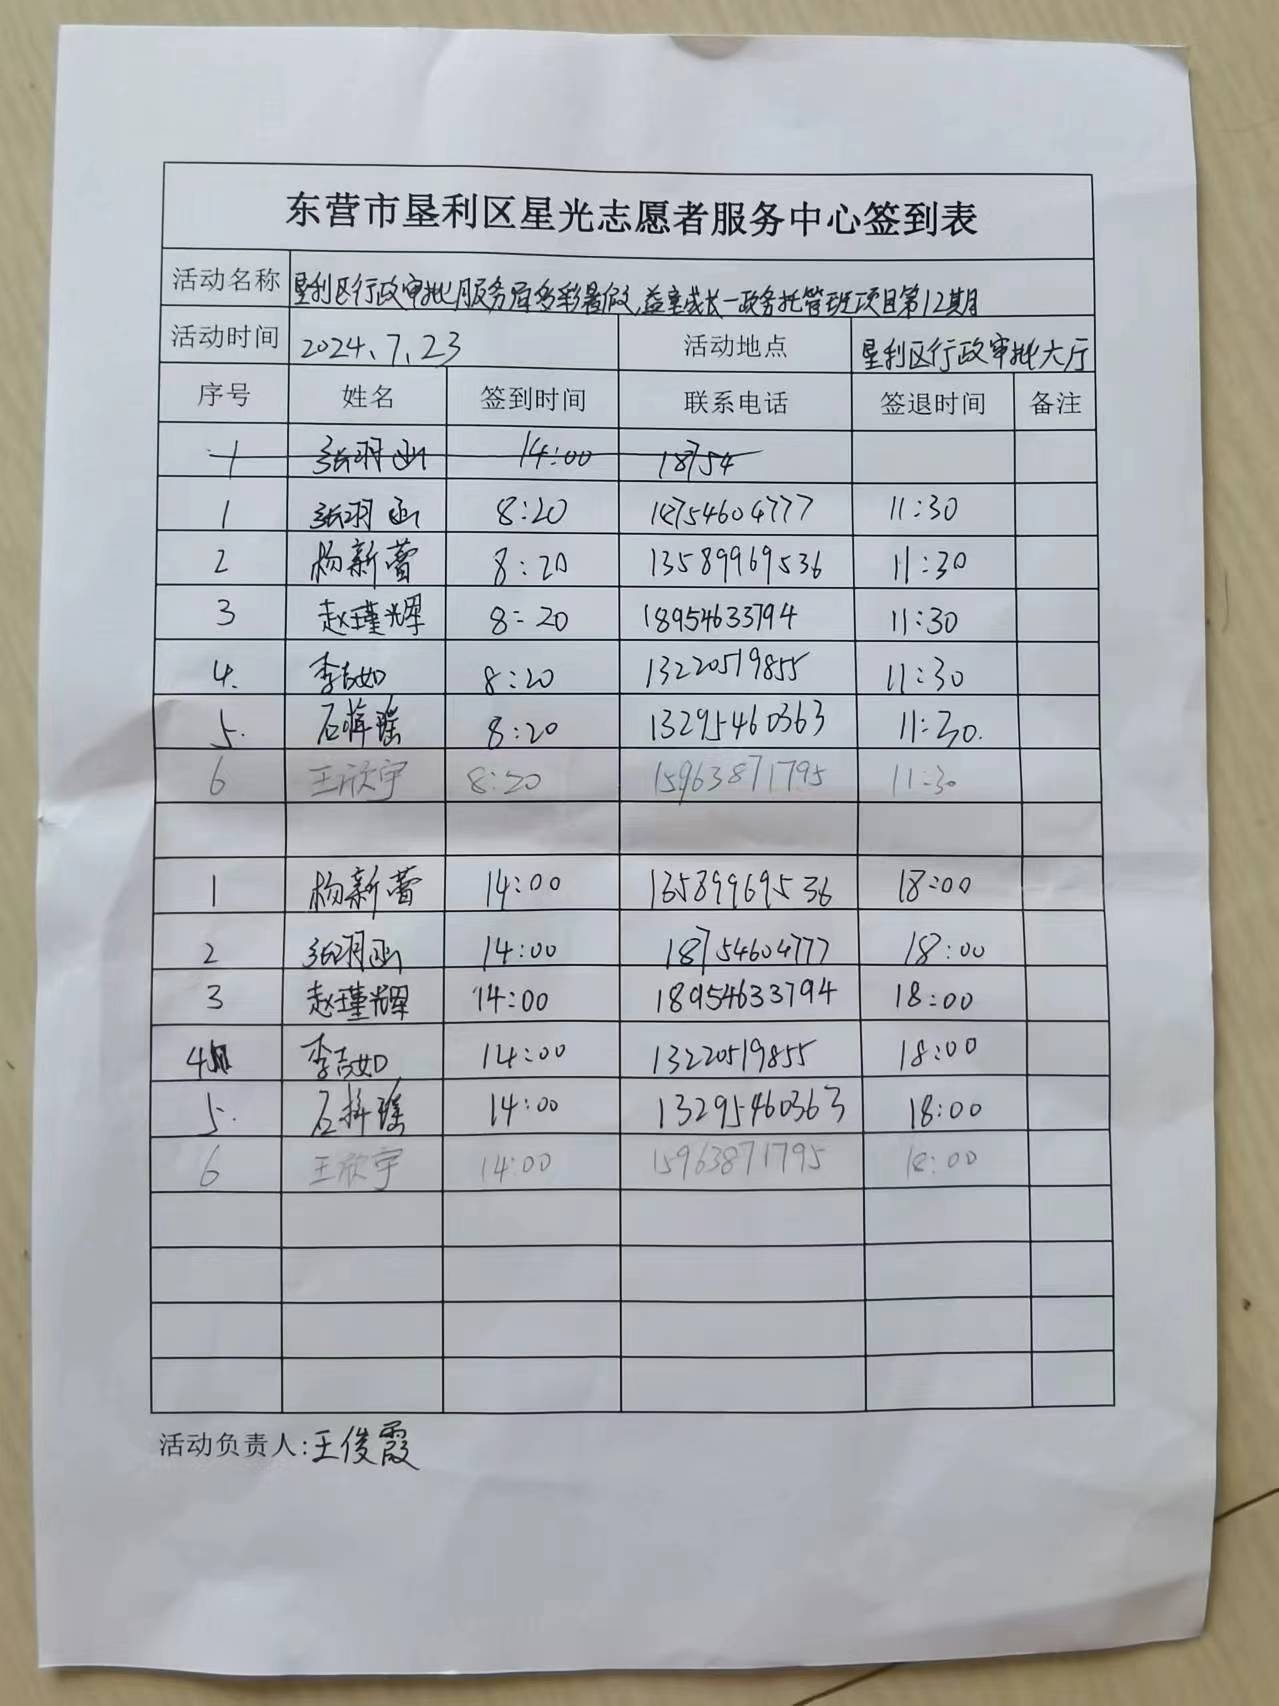 东营市垦利区星光志愿者服务中心签到表
活动名称 垦利区行政审批服务局多彩暑假,益童成长一政务托管班项目第12期
活动时间 2024、7、23 活动地点 垦利区行政审批大厅
序号 姓名 签到时间 联系电话 签退时间 备注
1 张羽函 14:00 18754
1 张羽函 8:20 18754604777 11:30
2 杨新蕾 8:20 13589969536 11:30
3 赵瑾辉 8:20 18954633794 11:30
4. 李喆如 8:20 13220519855 11:30
5. 8:20 13295460363 11:30.
6 王欣宇 8:20 15963871795 11:30
1 杨新蕾 14:00 13589969536 18:00
2 张羽函 14:00 18754604777 18:00
3 赵瑾辉 14:00 18954633794 18:00
4 李喆如 14:00 13220519855 18:00
5. 14:00 13295460363 18:00
6 王欣宇 14:00 15963871795 18:00
活动负责人:王俊霞